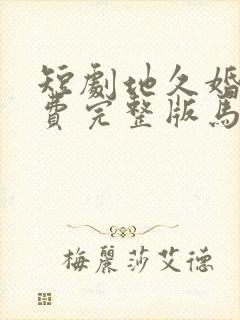 短劇地久婚
費完整版馬
梅麗莎艾德